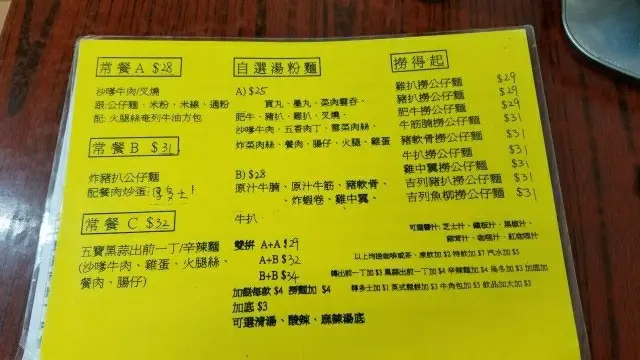 常餐A $28
沙嗲牛肉/叉燒
跟:公仔麵、米粉、米線、通粉
配:火腿絲奄列牛油方包
常餐B $31
炸豬扒公仔麵
配餐肉炒蛋
常餐C $32
五寶黑蒜出前一丁/辛辣麵
(沙嗲牛肉、雞蛋、火腿絲、
餐肉、腸仔)
自選湯粉麵
A) $25
貢丸、墨丸、菜肉雲吞、
肥牛、豬扒、雞扒、叉燒、
沙嗲牛肉、五香肉丁、雪菜肉絲、
炸菜肉絲、餐肉、腸仔、火腿、雞蛋
B) $28
原汁牛腩、原汁牛筋、豬軟骨、
炸蝦卷、雞中翼、
牛扒、
雙拼 A+A $29
A+B $32
B+B $34
加餸每款 $4 撈麵加 $4
加底 $3
可選清湯、酸辣、麻辣湯底
撈得起
雞扒撈公仔麵 $29
豬扒撈公仔麵 $29
肥牛撈公仔麵 $29
牛筋腩撈公仔麵 $31
豬軟骨撈公仔麵 $31
牛扒撈公仔麵 $31
雞中翼撈公仔麵 $31
吉列豬扒撈公仔麵 $31
吉列魚柳撈公仔麵 $31
可選醬汁: 芝士汁、燒板汁、黑椒汁、
蘑菇汁、咖喱汁、紅咖喱汁
以上均送咖啡或茶、凍飲加 $2 特飲加 $7 汽水加 $3
轉出前一丁加 $3 黑蒜出前一丁加 $4 辛辣麵加 $4 烏冬加 $3 加底加 $3
轉多士加 $1 英式鬆餅加 $3 牛角包加 $5 飲品加大加 $3